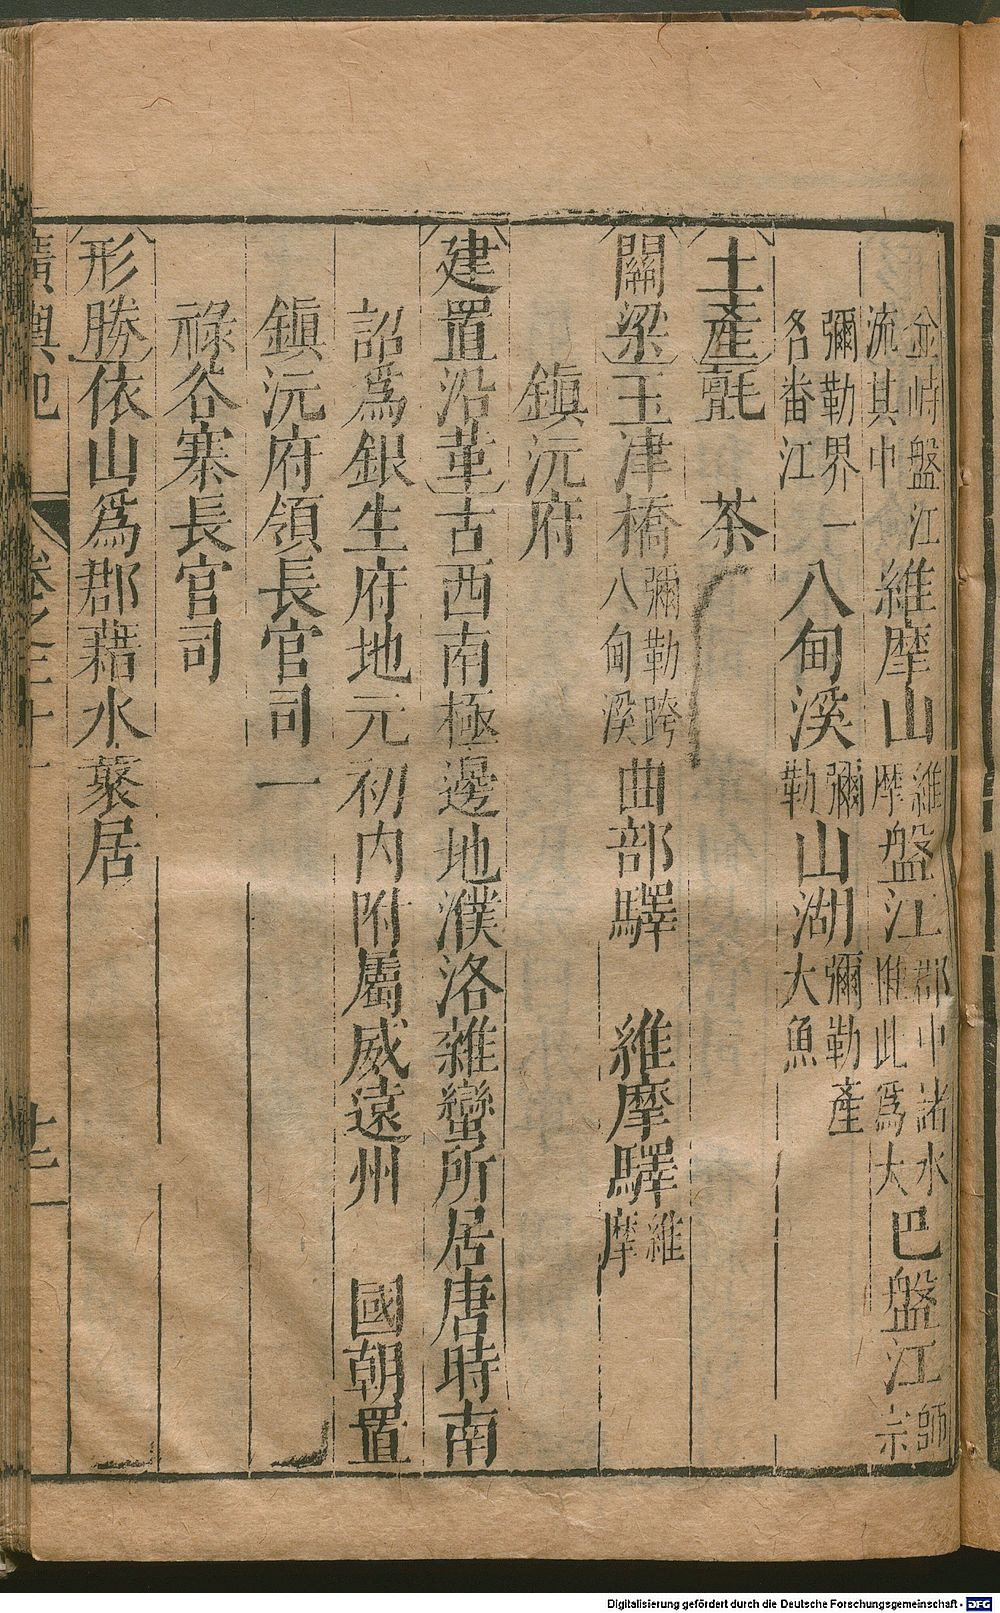 金峙盤江流其中維摩山維摩盤江郡中諸水惟此爲大巴盤江師宗
彌勒界一名番江八甸溪彌勒山湖彌勒產大魚
土產氈 茶
關梁玉津橋彌勒跨八甸溪曲部驛 維摩驛維摩
鎮沅府
建置沿革古西南極邊地濮洛雜蠻所居唐時南
詔爲銀生府地元初内附屬威遠州 國朝置
鎮沅府領長官司一
祿谷寨長官司
形勝依山爲郡藉水寨居
廣輿記 卷之二十一 廿二
Digitalisierung gefördert durch die Deutsche Forschungsgemeinschaft - DFG